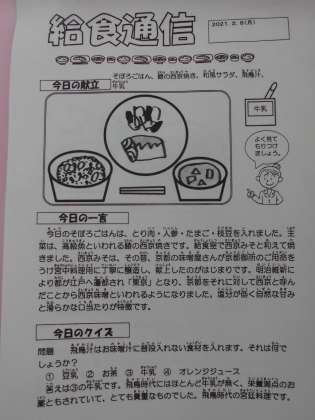 給食通信
2021. 2. 8(月)
今日の献立
そぼろごはん、鰆の西京焼き、和風サラダ、飛鳥汁、
牛乳
牛乳
よく見て
もりつけ
ましょう。
今日の一言
今日のそぼろごはんは、とり肉・人参・たまご・枝豆を入れました。主
菜は、高級魚といわれる鰆の西京焼きです。給食室で西京みそと和えて焼
きました。西京みそは、その昔、京都の味噌屋さんが京都御所のご用命を
うけ宮中料理用に丁寧に醸造し、献上したのがはじまりです。明治維新に
より都が江戸へ遷都され「東京」となり、京都をそれに対して西京と呼ん
だことから西京味噌といわれるようになりました。塩分が低く自然な甘み
と滑らかな口当たりが特徴です。
今日のクイズ
問題 飛鳥汁はお味噌汁に普段入れない食材を入れます。それは何で
しょうか?
① 豆乳 ② お茶 ③ 牛乳 ④ オレンジジュース
答えは③の牛乳です。飛鳥時代にはほとんど牛乳が無く、栄養満点のお
薬ともされていて、とても貴重なものでした。飛鳥時代の宮廷料理です。